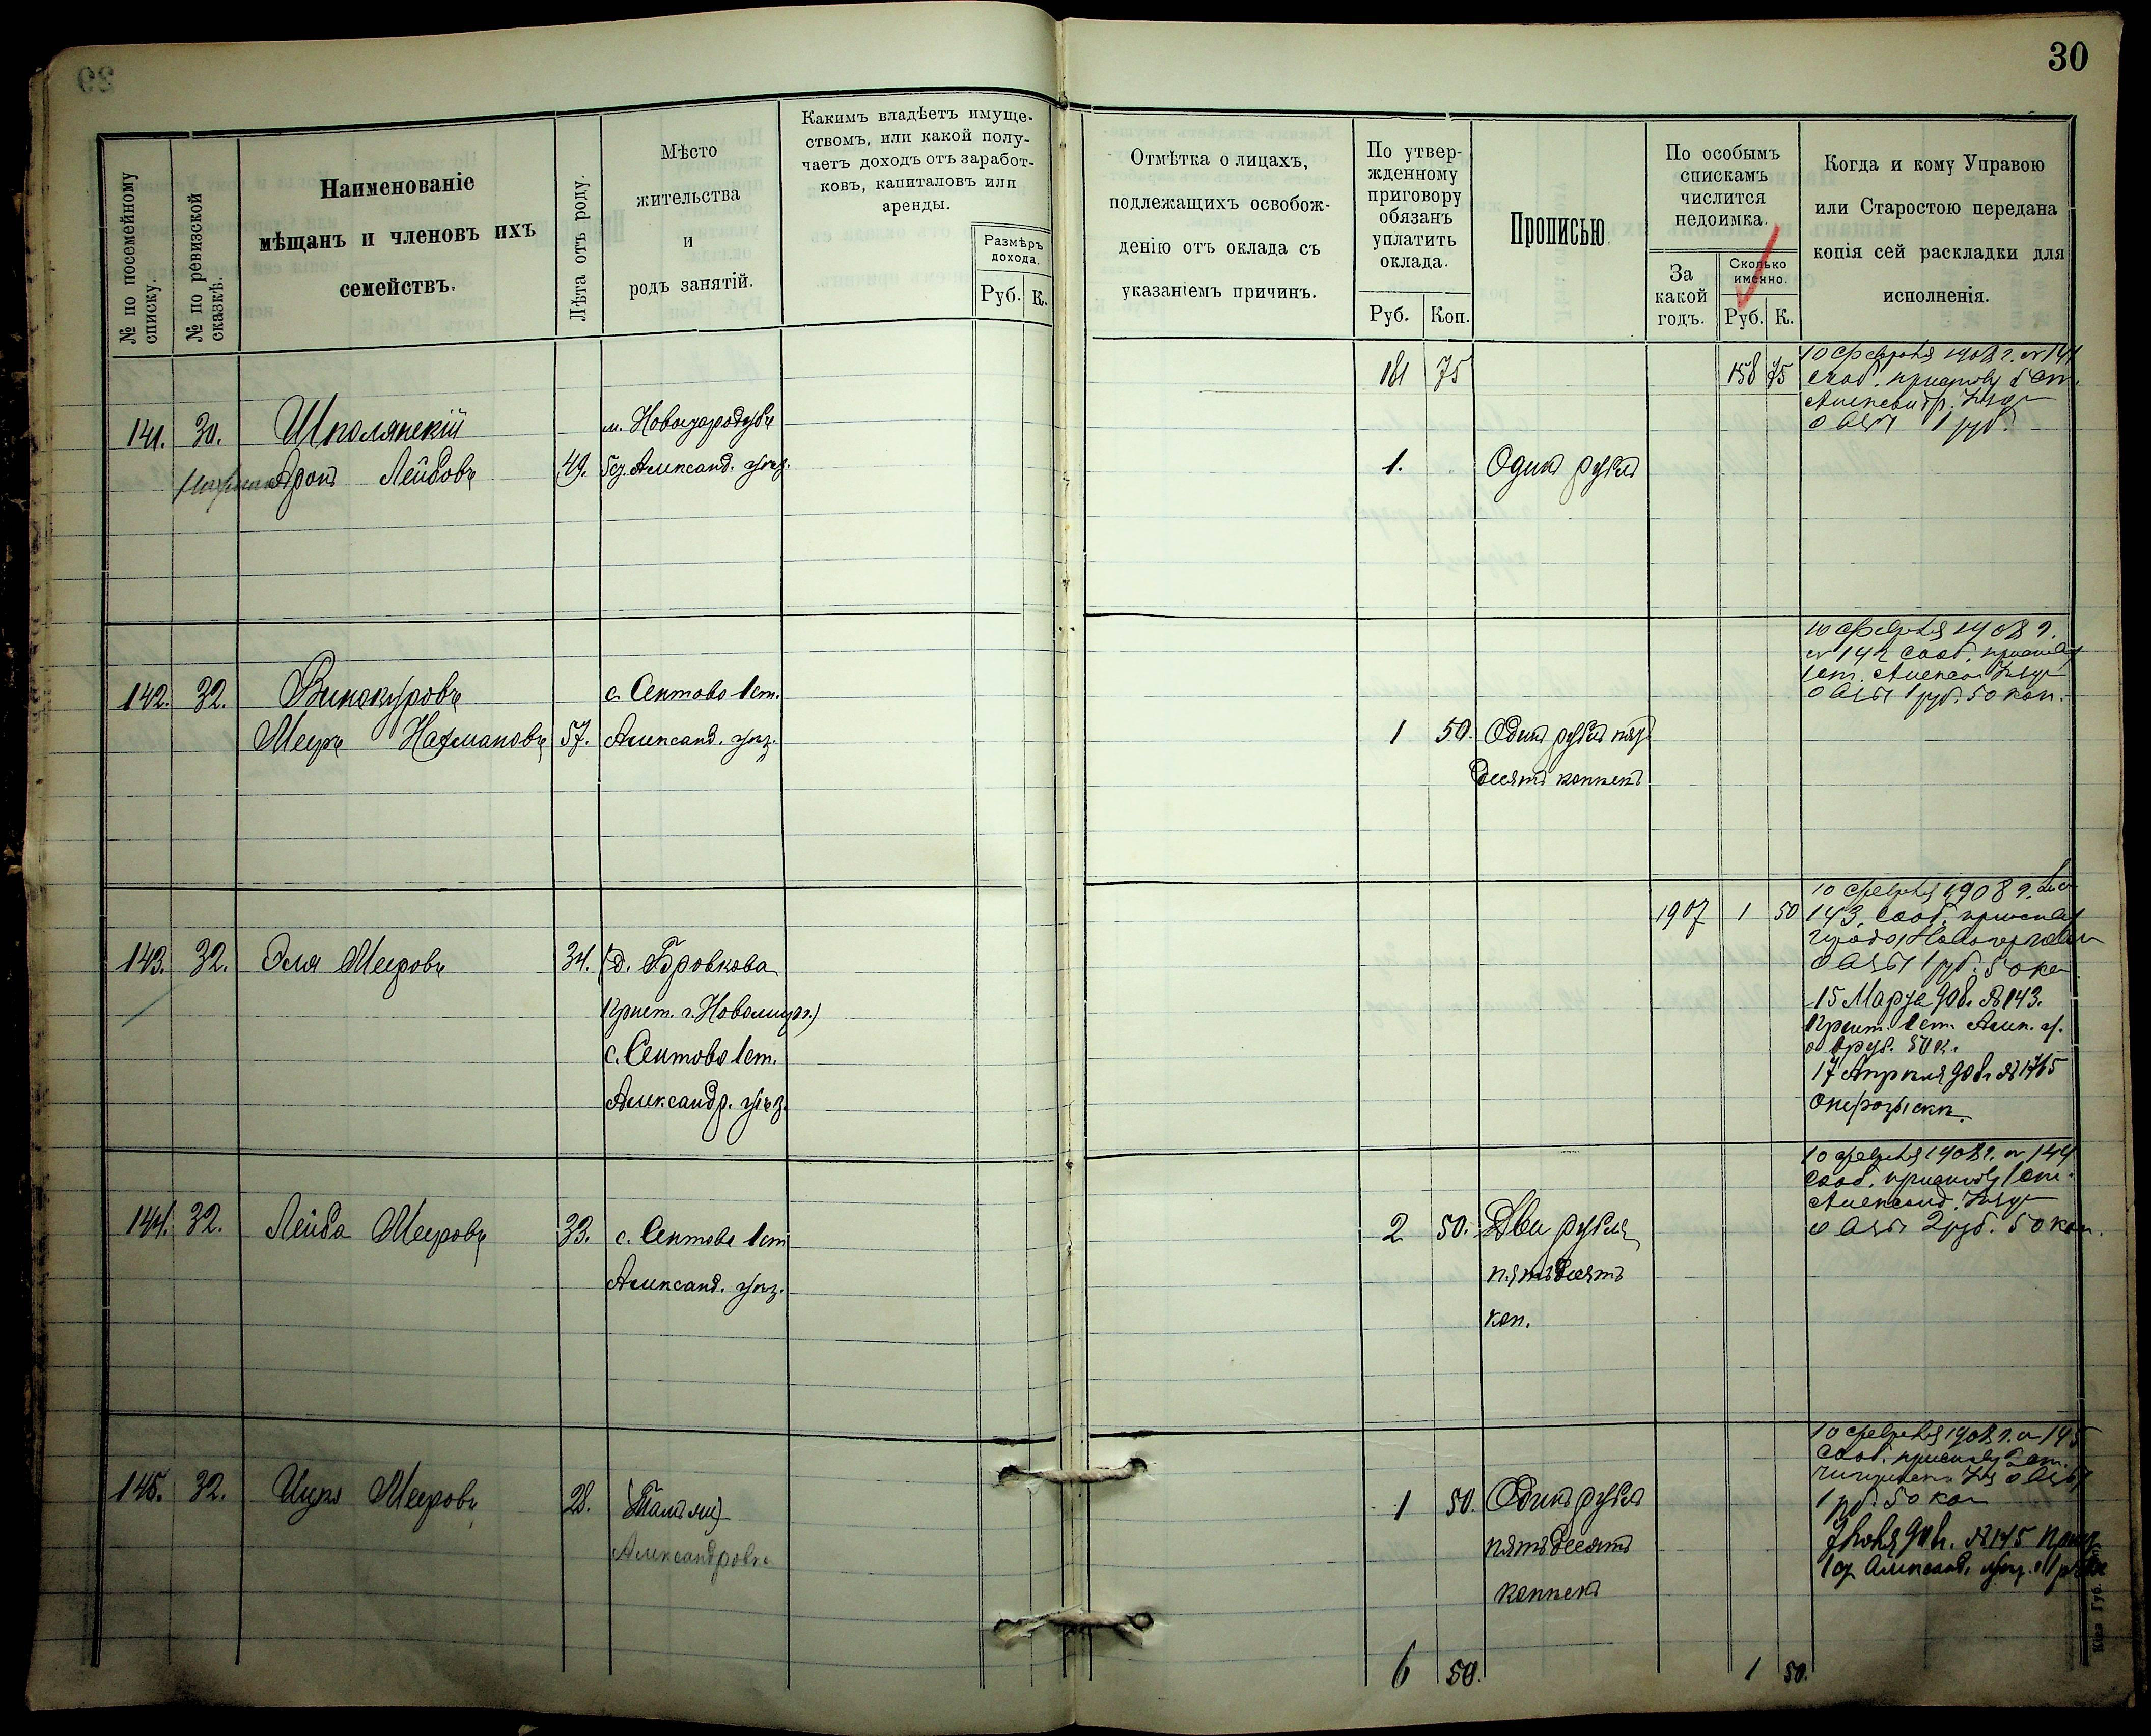 30
№ по посемейному списку.
№ по ревизской сказкѣ.
Наименованіе
мѣщанъ и членовъ ихъ
семействъ.
Лѣта отъ роду.
Мѣсто
жительства
и
родъ занятій.
Какимъ владѣетъ имуще-
ствомъ, или какой полу-
чаетъ доходъ отъ заработ-
ковъ, капиталовъ или
аренды.
Размѣръ
дохода.
Руб. К.
Отмѣтка о лицахъ,
подлежащихъ освобож-
денію отъ оклада съ
указаніемъ причинъ.
По утвер-
жденному
приговору
обязанъ
уплатить
оклада.
Руб. Коп.
Прописью.
По особымъ
спискамъ
числится
недоимка.
За
какой
годъ.
Сколько
именно.
Руб. К.
Когда и кому Управою
или Старостою передана
копія сей раскладки для
исполненія.
181 75 158 75
141. 30. Шполянскій
Аронъ Лейбовъ 49. Александ. уѣз.
1. Одинъ рубль
10 февраля 1908 г. № 141
сооб. приставу 5 ст.
Александр. уѣзда
1 руб.
142. 32. Винокуровъ с. Сентово 1 ст.
Мееръ Нахмановъ 57. Александ. уѣз.
1 50. Одинъ рубль пять
десятъ копѣекъ
10 февраля 1908 г.
№ 142 сооб. приставу
1 ст. Алексан. уѣзда
1 руб. 50 коп.
143. 32. Эля Мееровъ 34. (д. Бровкова
Прист. г. Новомирг.)
с. Сентово 1 ст.
Александр. уѣз.
1907 1 50
10 февраля 1908 г. №
143. сооб. приставу
города
1 руб. 50 ко
15 Марта 908. № 143.
Прист. 1 ст. Алек. у.
1 руб. 50 к.
17 Апрѣля 908 № 1765
о розыскѣ
144. 32. Лейба Мееровъ 33. с. Сентово 1 ст
Александ. уѣз.
2 50. Два рубля
пятьдесятъ
коп.
10 февраля 1908 г. № 144
сооб. приставу 1 ст.
Александ. уѣзда
2 руб. 50 коп.
145. 32. Ицко Мееровъ 28.
Александровка
1 50. Одинъ рубль
пятьдесятъ
копѣекъ
10 февраля 1908 г. № 145
сооб. приставу 2 ст.
1 руб. 50 коп
№ 145
6 50. 1 50.